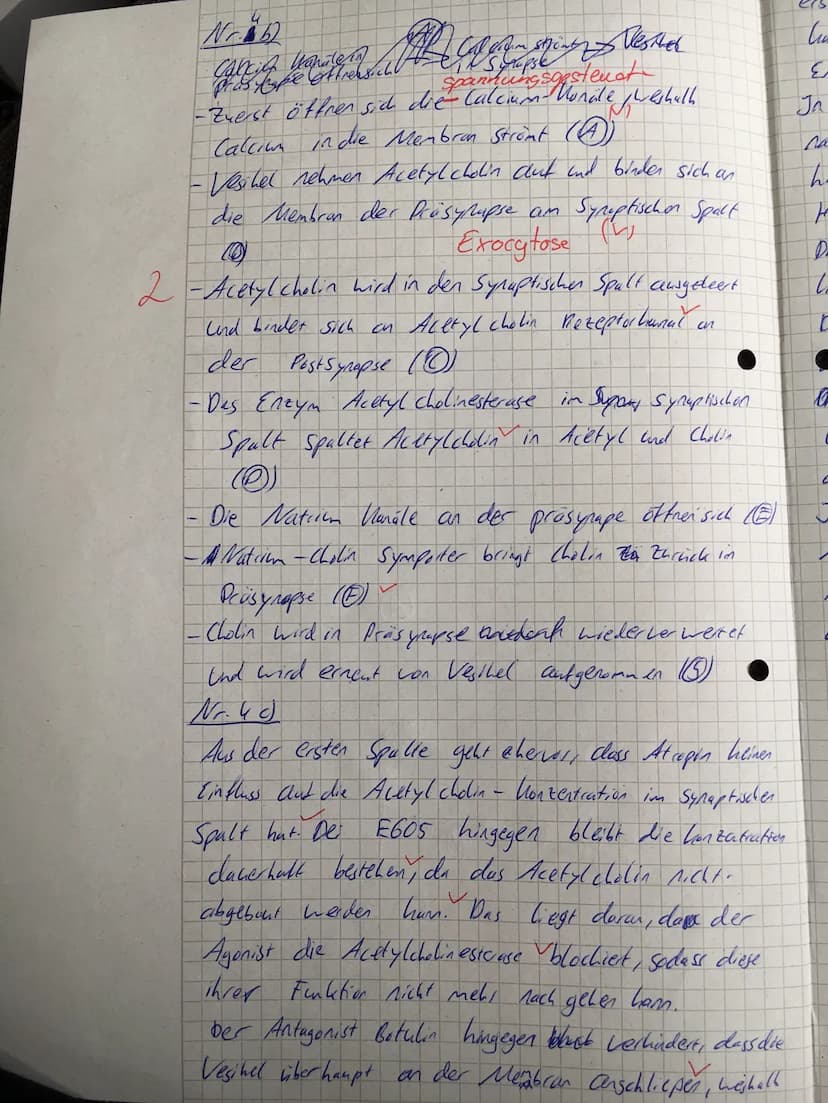 Nr. 4 b)
Calcium Kanäle in
präsynapse öffnen sich
Calcium strömt → Vesikel
in Synapse
spannungsgesteuert
- Zuerst öffnen sich die Calcium-Kanäle, weshalb
Calcium in die Membran strömt (A) (✓)
- Vesikel nehmen Acetylcholin auf und binden sich an
die Membran der Präsynapse am Synaptischen Spalt
(B) Exocytose (✓)
2 - Acetylcholin wird in den Synaptischen Spalt ausgeleert
und bindet sich an Acetylcholin Rezeptorkanal ✓ an
der Postsynapse (C)
- Das Enzym Acetylcholinesterase im synaptischen
Spalt spaltet Acetylcholin ✓ in Acetyl und Cholin
(D)
- Die Natrium Kanäle an der präsynape öffnen sich (E)
- Natrium-Cholin Symporter bringt Cholin zurück in
Präsynapse (F) ✓
- Cholin wird in Präsynapse wiederverwertet
und wird erneut von Vesikel aufgenommen (G)
Nr. 4 c)
Aus der ersten Spalte geht ehervor, dass Atropin keinen
Einfluss auf die Acetylcholin-Konzentration im Synaptischen
Spalt hat. ✓ Bei E605 hingegen bleibt die konzentration
dauerhaft bestehen, ✓ da das Acetylcholin nicht
abgebaut werden kann. ✓ Das liegt daran, dass der
Agonist die Acetylcholinesterase ✓ blockiert, sodass diese
ihrer Funktion nicht mehr nach gehen kann.
Der Antagonist Botulin hingegen verhindert, dass die
Vesikel überhaupt an der Membran anschließen ✓, weshalb